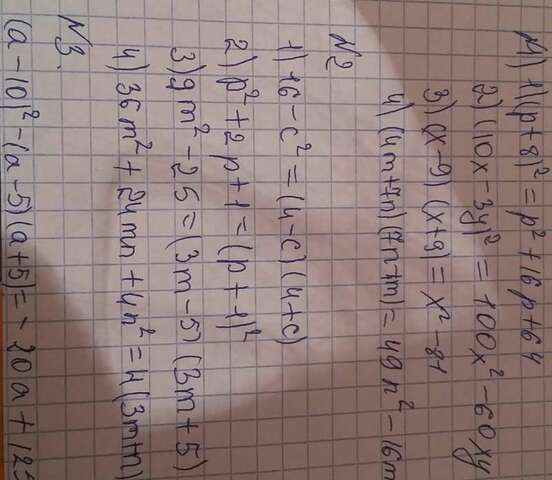 N1) 1) (p+8)² = p² + 16p + 64
2) (10x - 3y)² = 100x² - 60xy
3) (x-9) (x+9) = x² - 81
4) (4m+7n) (7n+m) = 49n² - 16m
N2
1) 16 - c² = (4-c) (4+c)
2) p² + 2p + 1 = (p+1)²
3) 9m² - 25 = (3m-5) (3m+5)
4) 36m² + 24mn + 4n² = 4(3m+n)
N3.
(a-10)² - (a-5) (a+5) = - 20a + 125